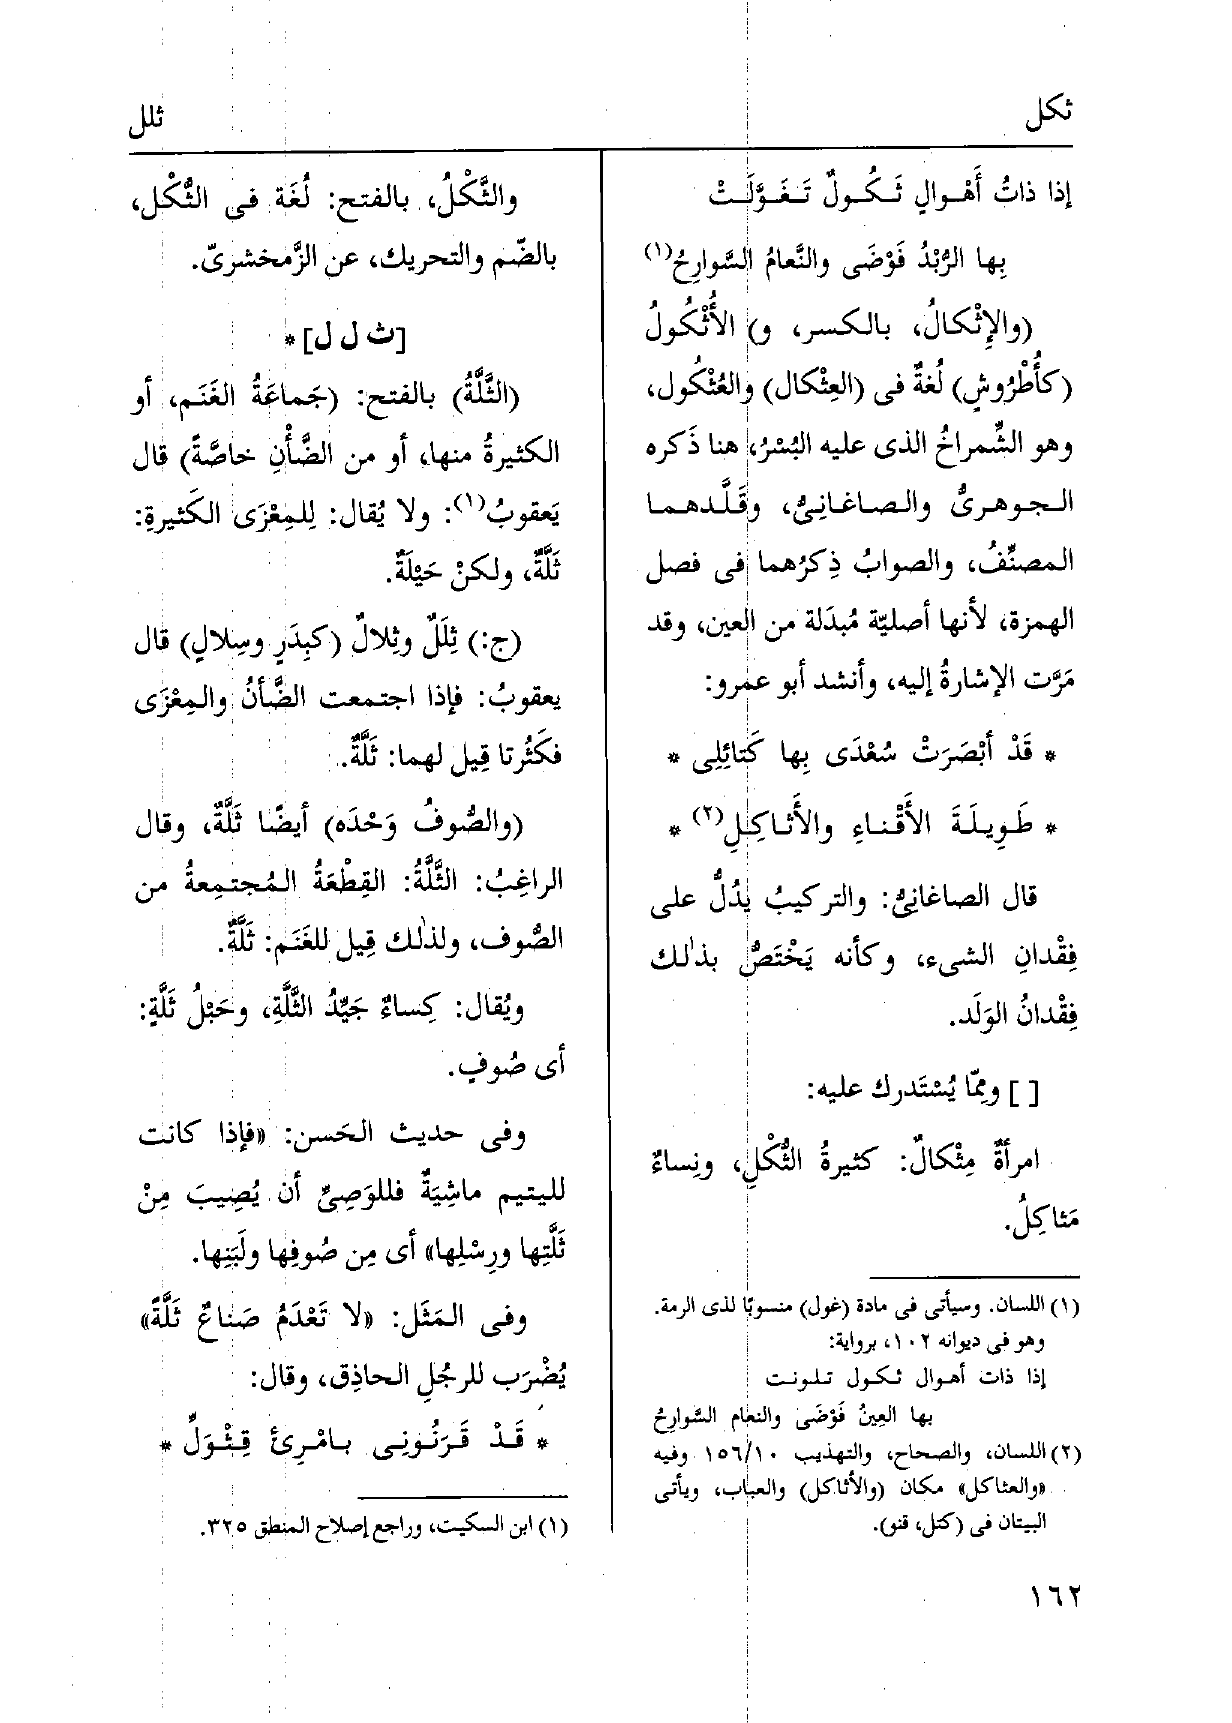 ثكل
ثلل
إذا ذاتُ أَهْـوالٍ ثَـكُـولٌ تَـغَـوَّلَـتْ
بِها الرُّبْدُ فَوْضَى والنَّعامُ السَّوارِحُ(١)
(والإِثْكالُ، بالكسر، و) الأُثْكُولُ
(كأُطْرُوشٍ) لُغةٌ فى (العِثْكال) والعُثْكُول،
وهو الشِّمراخُ الذى عليه البُسْرُ، هنا ذَكره
الجوهرىُّ والصاغانِىُّ، وقَلَّدهما
المصنِّفُ، والصوابُ ذِكرُهما فى فصل
الهمزة، لأنها أصليّة مُبدَلة من العين، وقد
مَرَّت الإشارةُ إليه، وأنشد أبو عمرو:
* قَدْ أَبْصَرَتْ سُعْدَى بِها كَتائِلِى *
* طَـوِيـلَـةَ الأَقْـنـاءِ والأَثـاكِـلِ(٢) *
قال الصاغانِىُّ: والتركيبُ يَدُلُّ على
فِقْدانِ الشىء، وكأنه يَخْتَصُّ بذٰلك
فِقْدانُ الوَلَد.
[ ] ومِمّا يُسْتَدرك عليه:
امرأةٌ مِثْكالٌ: كثيرةُ الثُّكْلِ، ونِساءٌ
مَثاكِلُ.
(١) اللسان. وسيأتى فى مادة (غول) منسوبًا لذى الرمة.
وهو فى ديوانه ١٠٢، برواية:
إذا ذات أهوال ثكول تلونت
بها العِينُ فَوْضَى والنعام السَّوارِحُ
(٢) اللسان، والصحاح، والتهذيب ١٥٦/١٠ وفيه
«والعثاكل» مكان (والأثاكل) والعباب، ويأتى
البيتان فى (كتل، قنو).
والثَّكْلُ، بالفتح: لُغَة فى الثُّكْل،
بالضّم والتحريك، عن الزَّمخشرىّ.
[ث ل ل] *
(الثَّلَّةُ) بالفتح: (جَماعَةُ الغَنَم، أو
الكثيرةُ منها، أو من الضَّأْنِ خاصَّةً) قال
يَعقوبُ(١): ولا يُقال: لِلمِعْزَى الكَثيرةِ:
ثَلَّةٌ، ولكنْ حَيْلَةٌ.
(ج:) ثِلَلٌ وثِلالٌ (كبِدَرٍ وسِلالٍ) قال
يعقوبُ: فإذا اجتمعت الضَّأنُ والمِعْزَى
فكَثُرتا قِيل لهما: ثَلَّةٌ.
(والصُّوفُ وَحْدَه) أيضًا ثَلَّةٌ، وقال
الراغِبُ: الثَّلَّةُ: القِطْعَةُ المُجتمِعةُ من
الصُّوف، ولذٰلك قِيل للغَنَم: ثَلَّةٌ.
ويُقال: كِساءٌ جَيِّدُ الثَّلَّةِ، وحَبْلُ ثَلَّةٍ:
أى صُوفٍ.
وفى حديث الحَسن: «فإذا كانت
لليتيم ماشِيَةٌ فللوَصِىِّ أن يُصِيبَ مِنْ
ثَلَّتِها ورِسْلِها» أى مِن صُوفِها ولَبَنِها.
وفى المَثَل: «لا تَعْدَمُ صَناعٌ ثَلَّةً»
يُضْرَب للرجُلِ الحاذِق، وقال:
* قَـدْ قَـرَنُـونِـى بـامْـرِئٍ قِـثْـوَلِّ *
(١) ابن السكيت، وراجع إصلاح المنطق ٣٢٥.
١٦٢